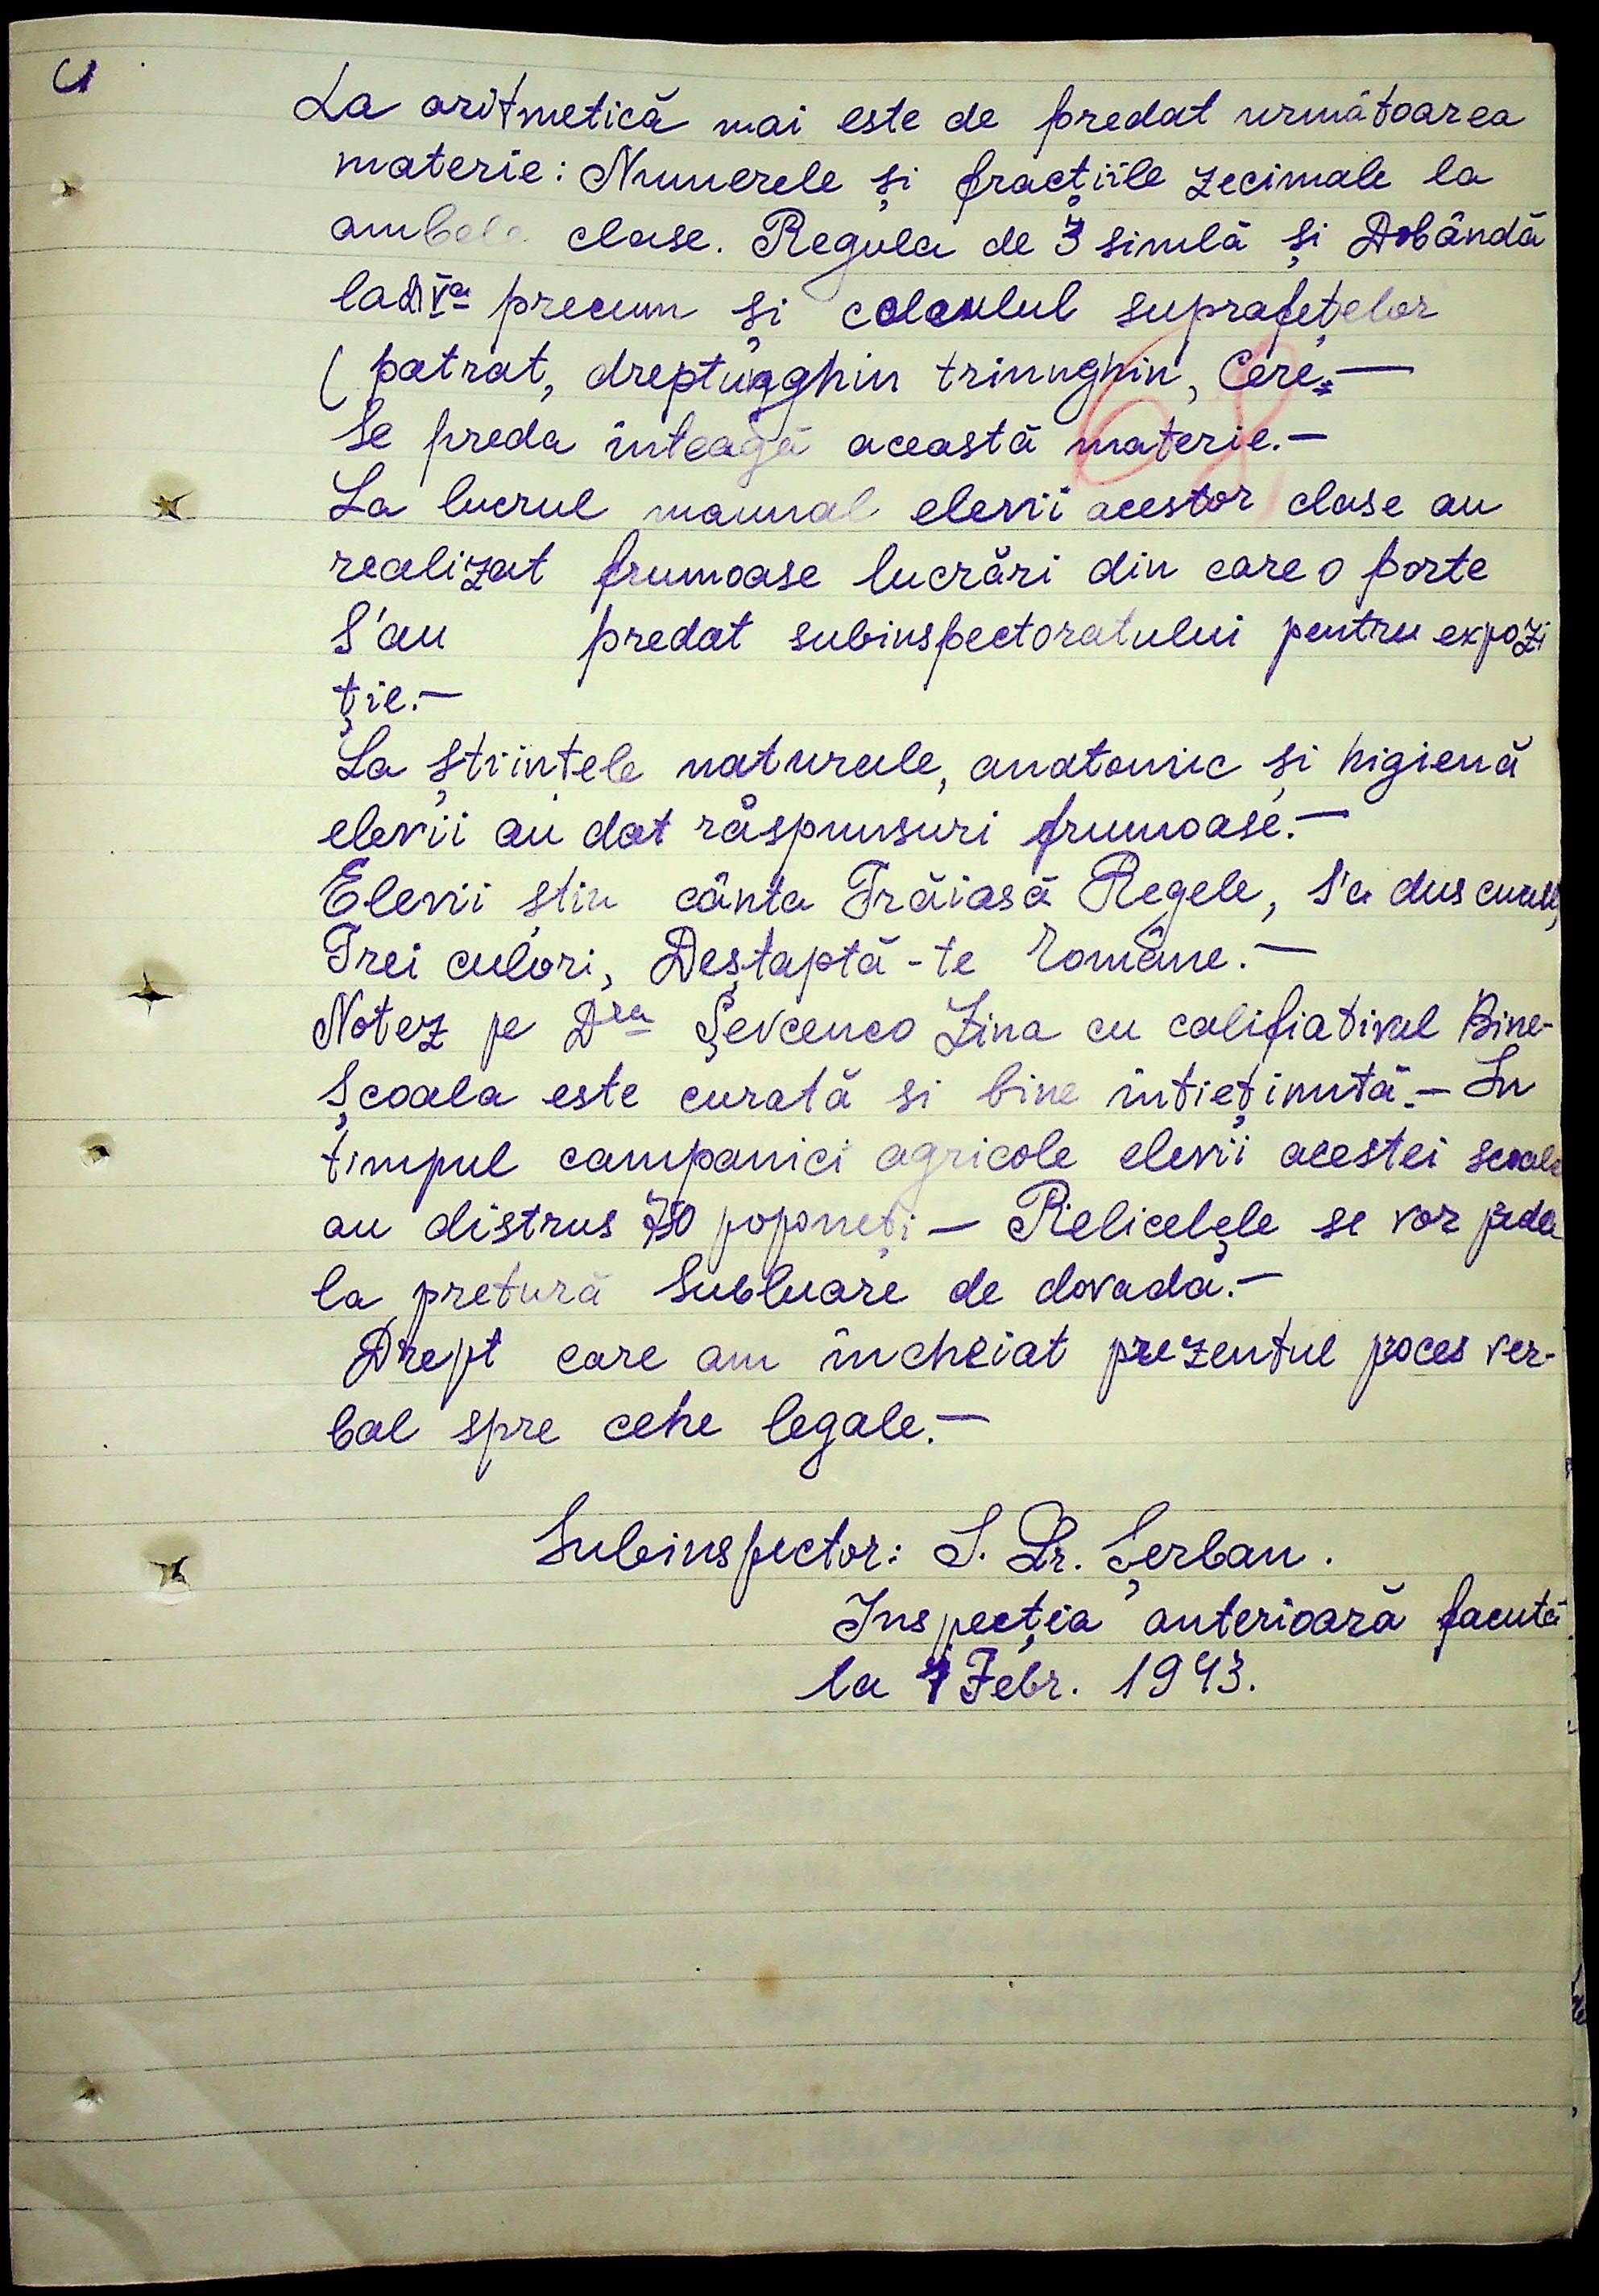 La aritmetică mai este de predat următoarea
materie: Numerele și fracțiile zecimale la
ambele clase. Regula de 3 simlă și Dobândă
la IVa precum și calculul suprafețelor
( patrat, dreptungghiu triunughiu, Cerc.—
Se preda înteagă această materie.—
La lucrul manual elevii acestor clase au
realizat frumoase lucrări din care o parte
S'au predat subinspectoratului pentru expozi
ție.—
La științele naturale, anatomie și higienă
elevii au dat răspunsuri frumoase.—
Elevii știu cânta Trăiasă Regele, S'a dus
Trei culori, Deștaptă-te Române.—
Notez pe Dra Șevcenco Zina cu califiativul Bine-
Școala este curată si bine întieținută.— In
timpul campaniei agricole elevii acestei scoale
au distrus 750 poponeți — Pielicelele se vor preda
la pretură Subluare de dovadă.—
Drept care am încheiat prezentul proces ver-
bal spre cele legale.—
Subinspector: S. Gr. Șerban.
Inspecția anterioară facută
la 1 Febr. 1943.